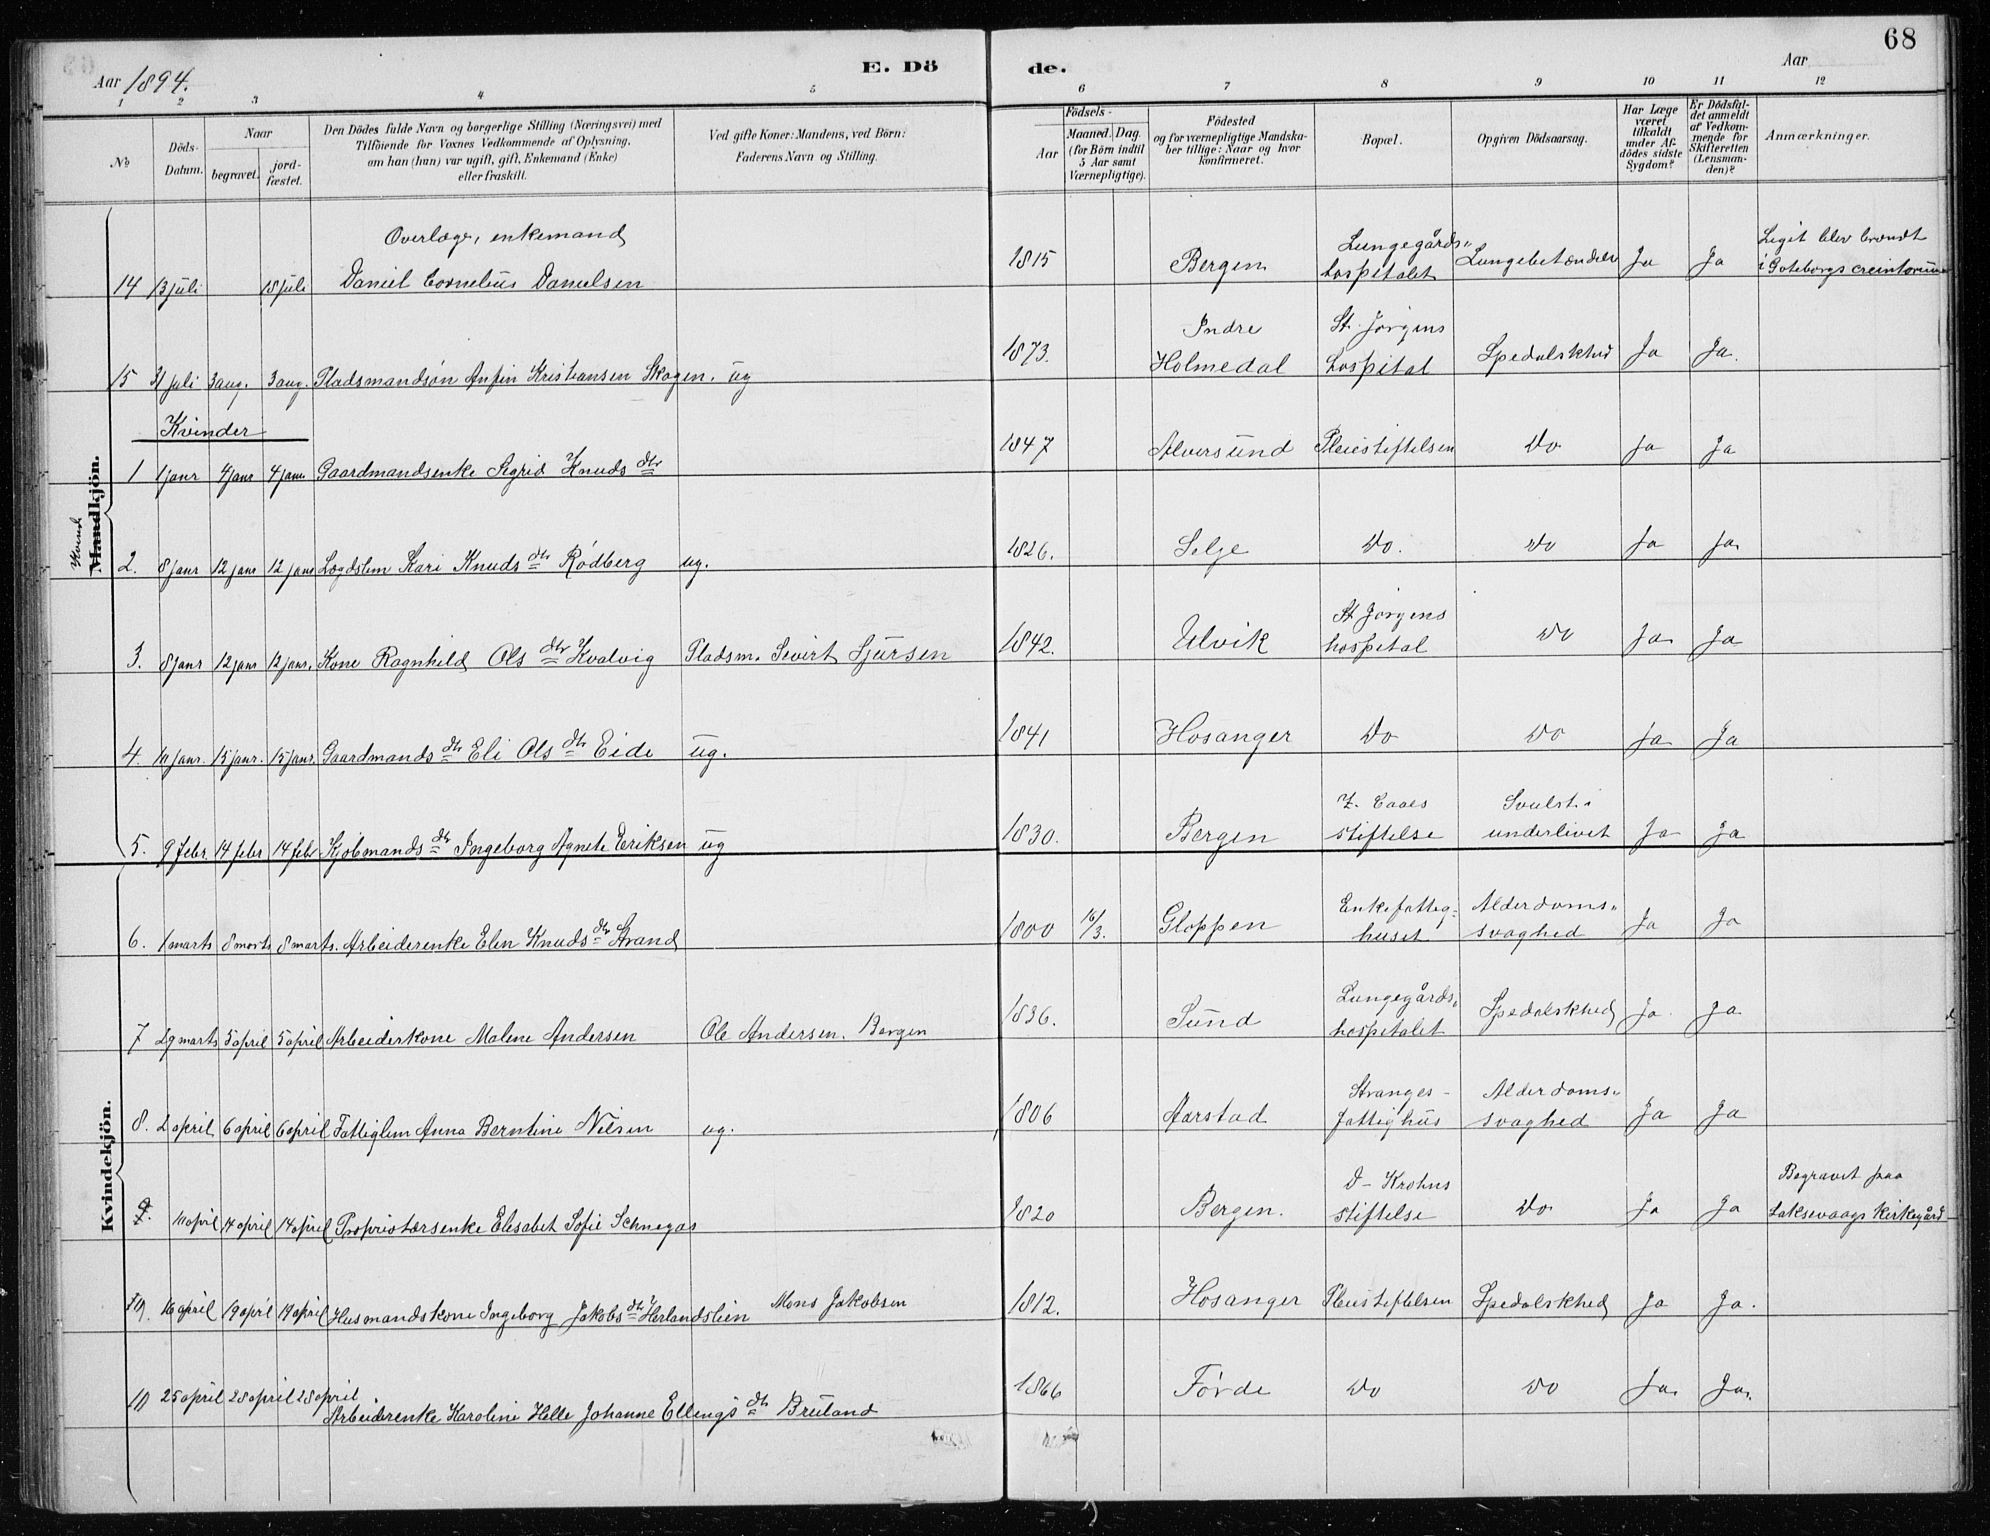 68
Aar 1894. E. Dö de. Aar
1 2 3 4 5 6 7 8 9 10 11 12
№ Döds-Datum. Naar begravet. jord-fæstet. Den Dödes fulde Navn og borgerlige Stilling (Næringsvei) med Tilföiende for Voxnes Vedkommende af Oplysning, om han (hun) var ugift, gift, Enkemand (Enke) eller fraskilt. Ved gifte Koner: Mandens, ved Börn: Faderens Navn og Stilling. Födsels- Aar Maaned. Dag. (for Börn indtil 5 Aar samt Værnepligtige). Födested og for værnepligtige Mandskaber tillige: Naar og hvor konfirmeret. Bopæl. Opgiven Dödsaarsag. Har Læge været tilkaldt under Afdödes sidste Sygdom? Er Dödsfaldet anmeldt af Vedkommende for Skifteretten (Lensmanden)? Anmærkninger.
Overlæge, enkemand
14 13 juli 18 juli Daniel Cornelius Danielsen 1815 Bergen Lungegårds- hospitalet Lungebetændelse Ja Ja Liget blev brændt i Goteborgs
15 31 juli 3 aug. 3 aug. Pladsmandsøn Anfin Kristiansen Skogen. ug 1873. Indre Holmedal St. Jørgens hospital Spedalskhed Ja Ja.
Kvinder
Kvind Mandkjön.
1 1 janr 4 janr 4 janr Gaardmandsenke Sigrid Knudsdtr 1847 Alversund Pleiestiftelsen Do Ja Ja
2. 8 janr 12 janr 12 janr Lægdslem Kari Knudsdtr Rødberg ug. 1826. Selje Do. Do Ja Ja
3. 8 janr 12 janr 12 janr. Kone Ragnhild Olsdtr Kvalvig Pladsm. Sivert Sjursen 1842. Ulvik St. Jørgens hospital Do Ja Ja
4. 10 janr. 15 janr. 15 janr. Gaardmandsdtr Eli Olsdtr Eide ug. 1841 Hosanger Do Do Ja Ja
5. 9 febr 14 febr 14 febr Kjøbmandsdtr Ingeborg Agnete Eriksen ug 1830. Bergen Z. Caaes stiftelse Svulst i underlivet Ja Ja
Kvindekjön.
6. 1 marts 8 marts 8 marts. Arbeiderenke Elen Knudsdtr Strand 1800 16/3. Gloppen Enkefattig- huset Alderdoms- svaghed Ja Ja
7 29 marts 5 april 5 april Arbeiderskone Malene Andersen Ole Andersen. Bergen 1836. Sund Lungegårds- hospitalet Spedalskhed Ja Ja
8. 2 april 6 april 6 april Fattiglem Anna Berntine Nilsen ug. 1806 Aarstad Stranges- fattighus Alderdoms- svaghed Ja Ja
9. 10 april 14 april 14 april Proprietærsenke Elesabet Sofie Schnegas 1820 Bergen. D- Krohns stiftelse Do Ja Ja Begravet paa Laksevaags kirkegård
10. 16 april 19 april 19 april Husmandskone Ingeborg Jakobsdtr Herlandslien Mons Jakobsen 1812. Hosanger Pleiestiftelsen Spedalskhed Ja Ja.
10 25 april 28 april 28 april Arbeiderenke Karoline Helle Johanne Ellingsdtr Bruland 1866 Førde Do Do Ja Ja.